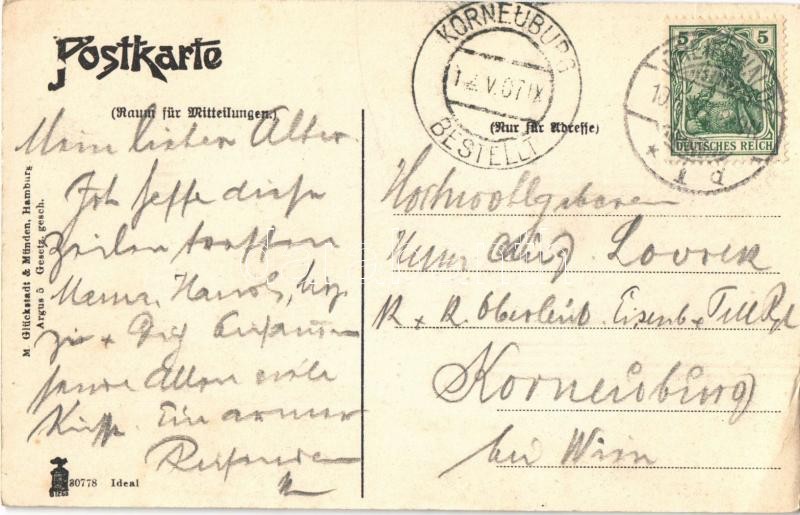 Postkarte
(Raum für Mitteilungen.)
Mein lieber Alter
Ich hoffe diese
Zeilen treffen
Mama,
Dich
sende Allen viele
Küsse. Ein armer
Reisender
M. Glückstadt & Münden, Hamburg
Argus 5 Gesetz. gesch.
30778 Ideal
KORNEUBURG
12.V.07 IX
BESTELLT
(Nur für Adresse)
5 5
DEUTSCHES REICH
Hochwohlgeboren
Herrn Lovrek
K + K Oberleut. Eisenb. +
Korneuburg
bei Wien